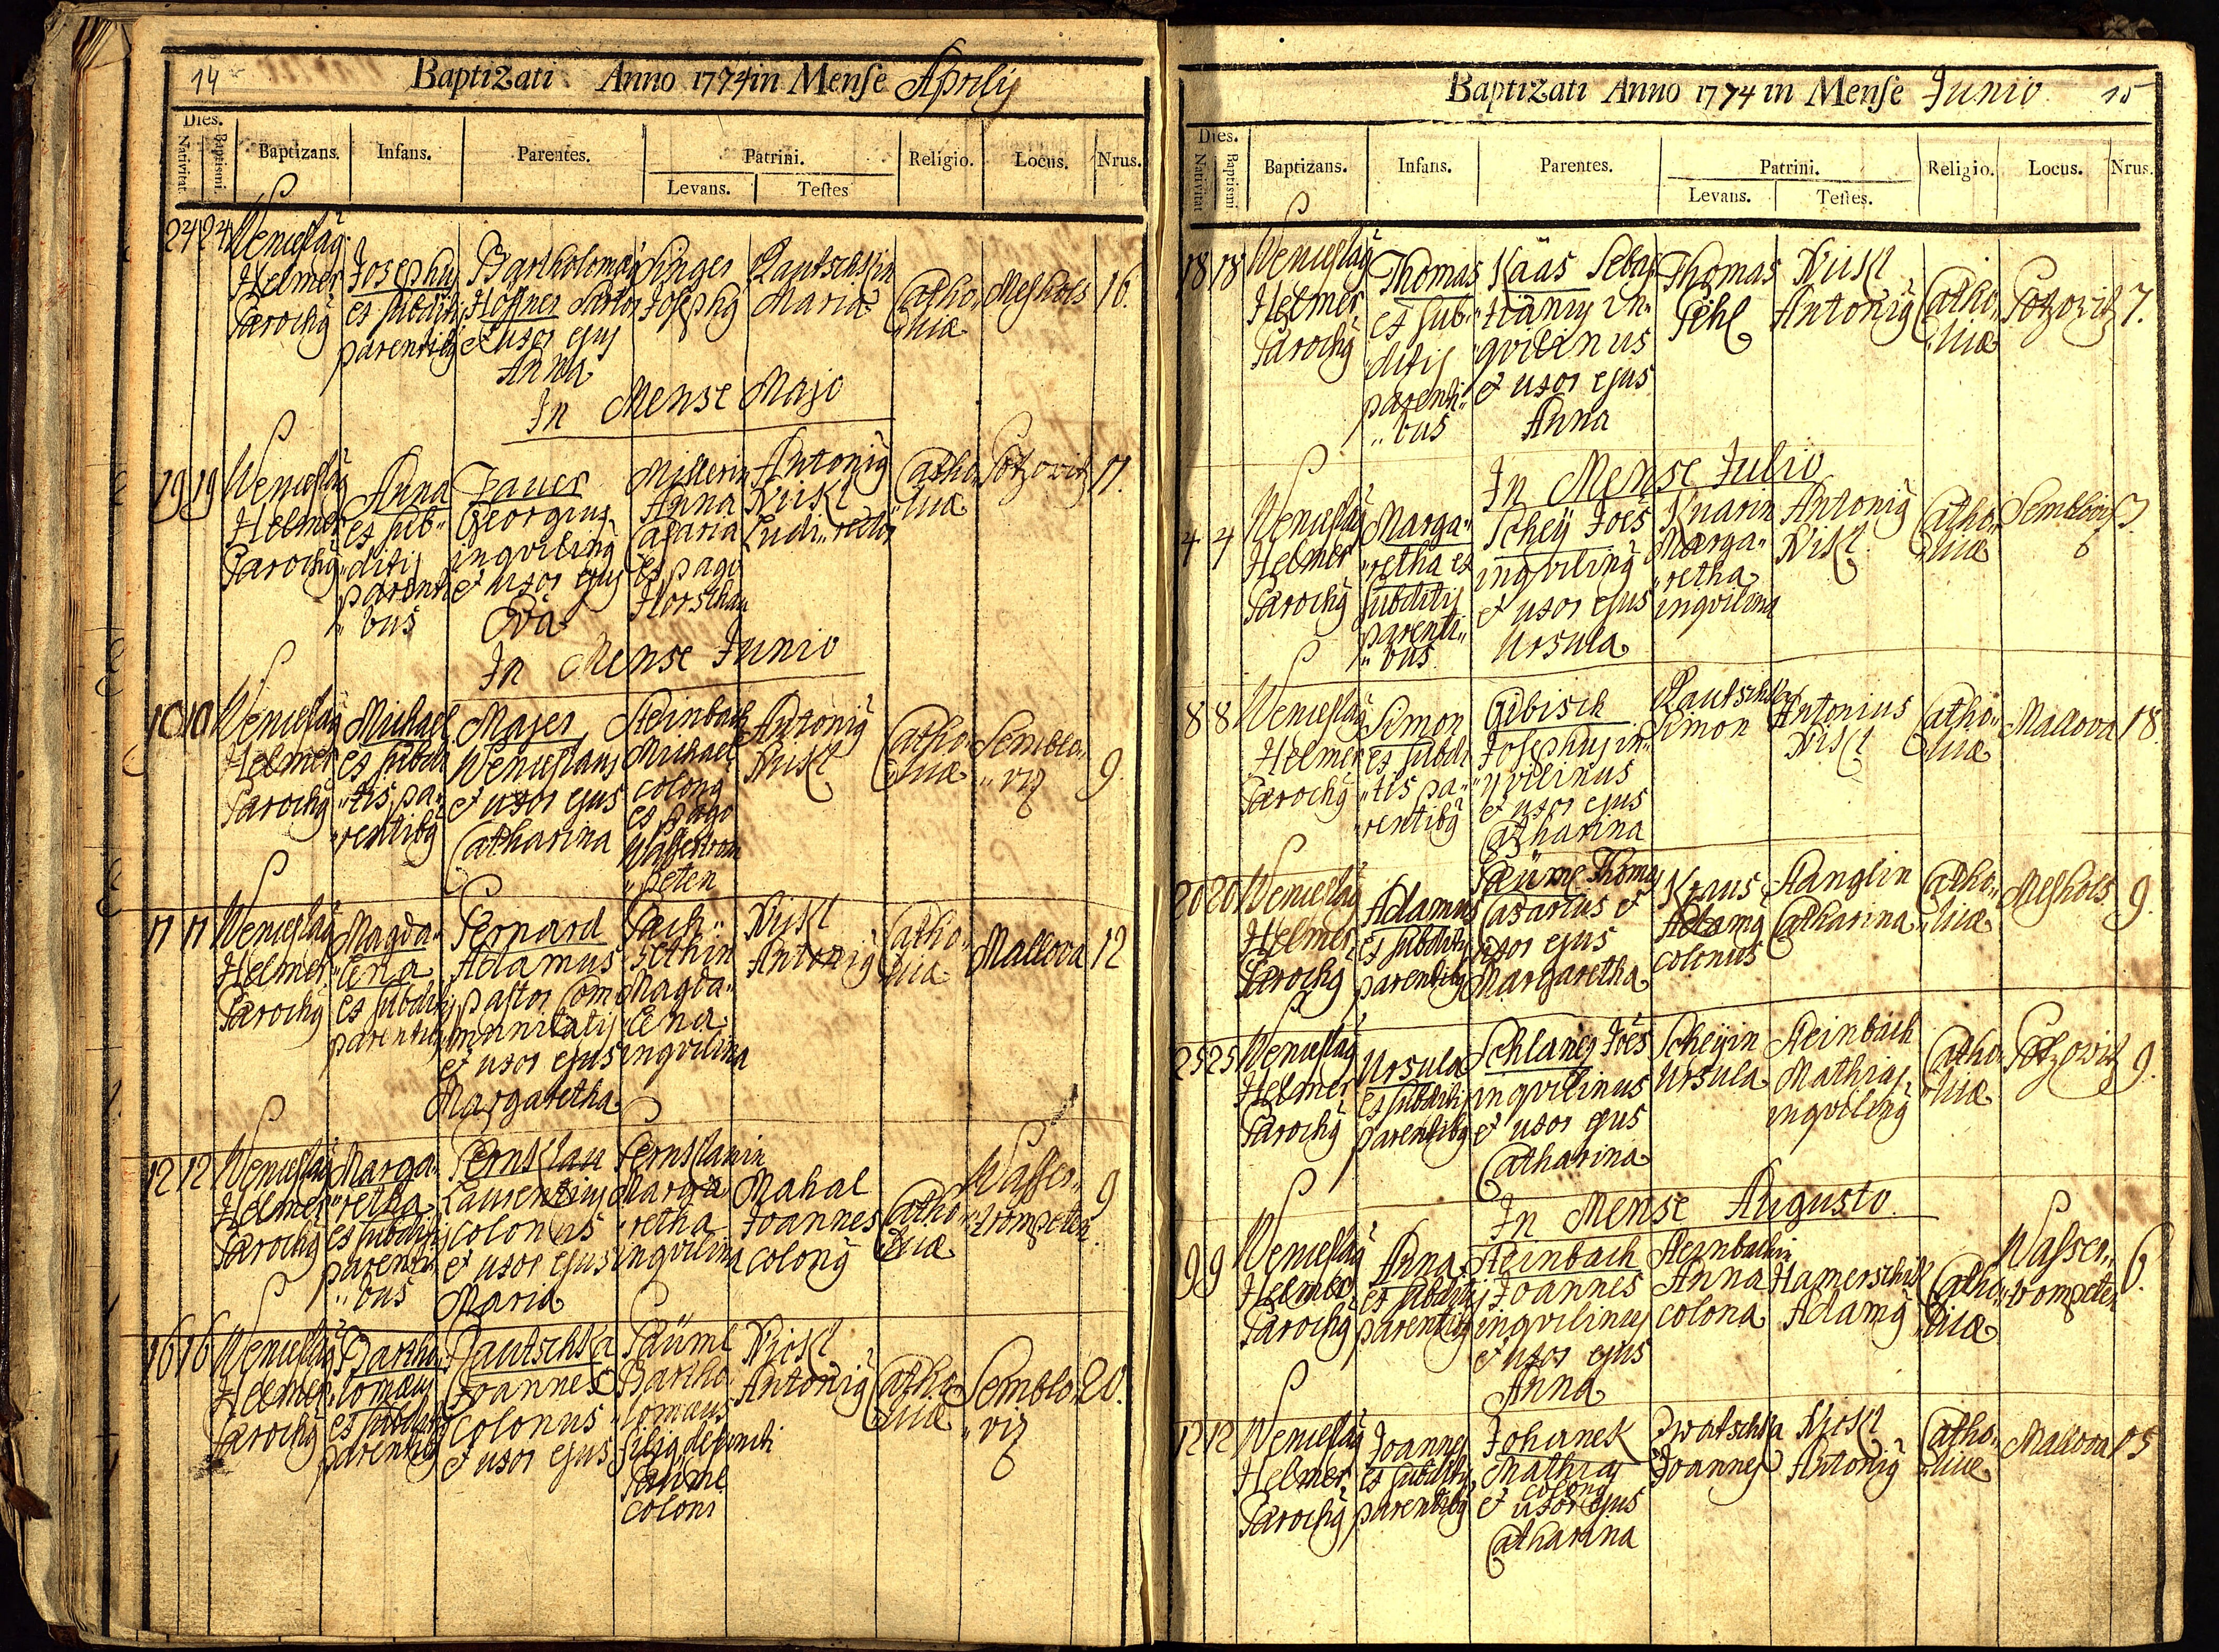 14
Baptizati Anno 1774 in Mense Aprilij
Dies.
Nativitat.
Baptismi.
Baptizans.
Infans.
Parentes.
Patrini.
Levans.
Testes
Religio.
Locus.
Nrus.
24 24 Wenceslaȳ Helmer Parochȳ
Josephus ex subditis parentibȳ
Bartholomaȳ Hoffner Sartor et uxor ejus Anna
Singer Josephȳ
Rautschkin Maria
Catho„ „licæ
Mesholz
16.
In Mense Majo
19 19 Wenceslaȳ Helmer Parochȳ
Anna ex sub„ „ditis parenti „bus
Georgius inqvilinȳ et uxor ejus Eva
Millerin Anna Casaria ex pago Horschau
Antoniȳ Ludi„ rector
Catho „licæ
Potzowitz
11.
In Mense Junio
10 10 Wenceslaȳ Helmer Parochȳ
Michael ex subdi „tis pa„ „rentibȳ
Mayer Wenceslaus et uxor ejus Catharina
Steinbach Michael colonȳ ex pago Wassertrom „peten
Antoniȳ Nickl
Catho„ „licæ
Semblo„ „viz
9.
11 11 Wenceslaȳ Helmer Parochȳ
Magda„ „lena ex subditis parentibȳ
Pernard Adamus pastor Com „munitatis et uxor ejus Margaretha
Magda„ „lena inqvilina
Nickl Antoniȳ
Catho„ „licæ
Mallova
12
12 12 Wenceslaȳ Helmer Parochȳ
Marga„ „retha ex subditis parenti„ „bus
Pernklau Laurentius colonus et uxor ejus Maria
Pernklauin Marga „retha inqvilina
Mahal Joannes colonȳ
Catho„ „licæ
Wasser„ „trompeten.
9
16 16 Wenceslaȳ Helmer Parochȳ
Bartho„ „lomæus ex subditis parentibȳ
Rautschka Joannes colonus et uxor ejus
Päüml Bartho „lomæus filiȳ defuncti Päüml coloni
Nickl Antoniȳ
Catho „licæ
Semblo„ „viz
20.
Baptizati Anno 1774 in Mense Junio
15
Dies.
Nativitat
Baptismi
Baptizans.
Infans.
Parentes.
Patrini.
Levans.
Testes.
Religio.
Locus.
Nrus.
18 18 Wenceslaȳ Helmer Parochȳ
Thomas ex sub„ „ditis parenti„ „bus
Kääs Sebas „tianus in„ „qvilinus et uxor ejus Anna
Thomas Pehl
Nickl Antoniȳ
Catho„ „licæ
Potzowitz
7.
In Mense Julio
4 4 Wenceslaȳ Helmer Parochȳ
Marga„ „retha ex subditis parenti„ „bus
Scheÿ Joës inqvilinȳ et uxor ejus Ursula
Knarin Marga„ „retha inqvilina
Antoniȳ Nickl
Catho„ „licæ
Sembloviz
3
8 8 Wenceslaȳ Helmer Parochȳ
Simon ex subdi „tis pa„ „rentibȳ
Gebisch Josephus in„ „qvilinus et uxor ejus Catharina
Rautschka Simon
Antonius Nickl
Catho„ „licæ
Mallova
18.
20 20 Wenceslaȳ Helmer Parochȳ
Adamus ex subditis parentibȳ
Päüml Thomas Casarius et uxor ejus Margaretha
Kraus Adamȳ colonus
Stanglin Catharina
Catho„ „licæ
Mesholz
9.
25 25 Wenceslaȳ Helmer Parochȳ
Ursula ex subditis parentibȳ
Joës inqvilinus et uxor ejus Catharina
Scheÿin Ursula
Steinbach Mathias inqvilinȳ
Catho„ „licæ
Potzowitz
9.
In Mense Augusto
9 9 Wenceslaȳ Helmer Parochȳ
Anna ex subditis parentibȳ
Steinbach Joannes inqvilinus et uxor ejus Anna
Steinbachin Anna colona
Hamerschik Adamȳ
Catho„ „licæ
Wasser„ „trompeten
6.
12 12 Wenceslaȳ Helmer Parochȳ
Joannes ex subditis parentibȳ
Johanek Mathias colonȳ et uxor ejus Catharina
Zwatschka Joannes
Nickl Antoniȳ
Catho„ „licæ
Mallova
15